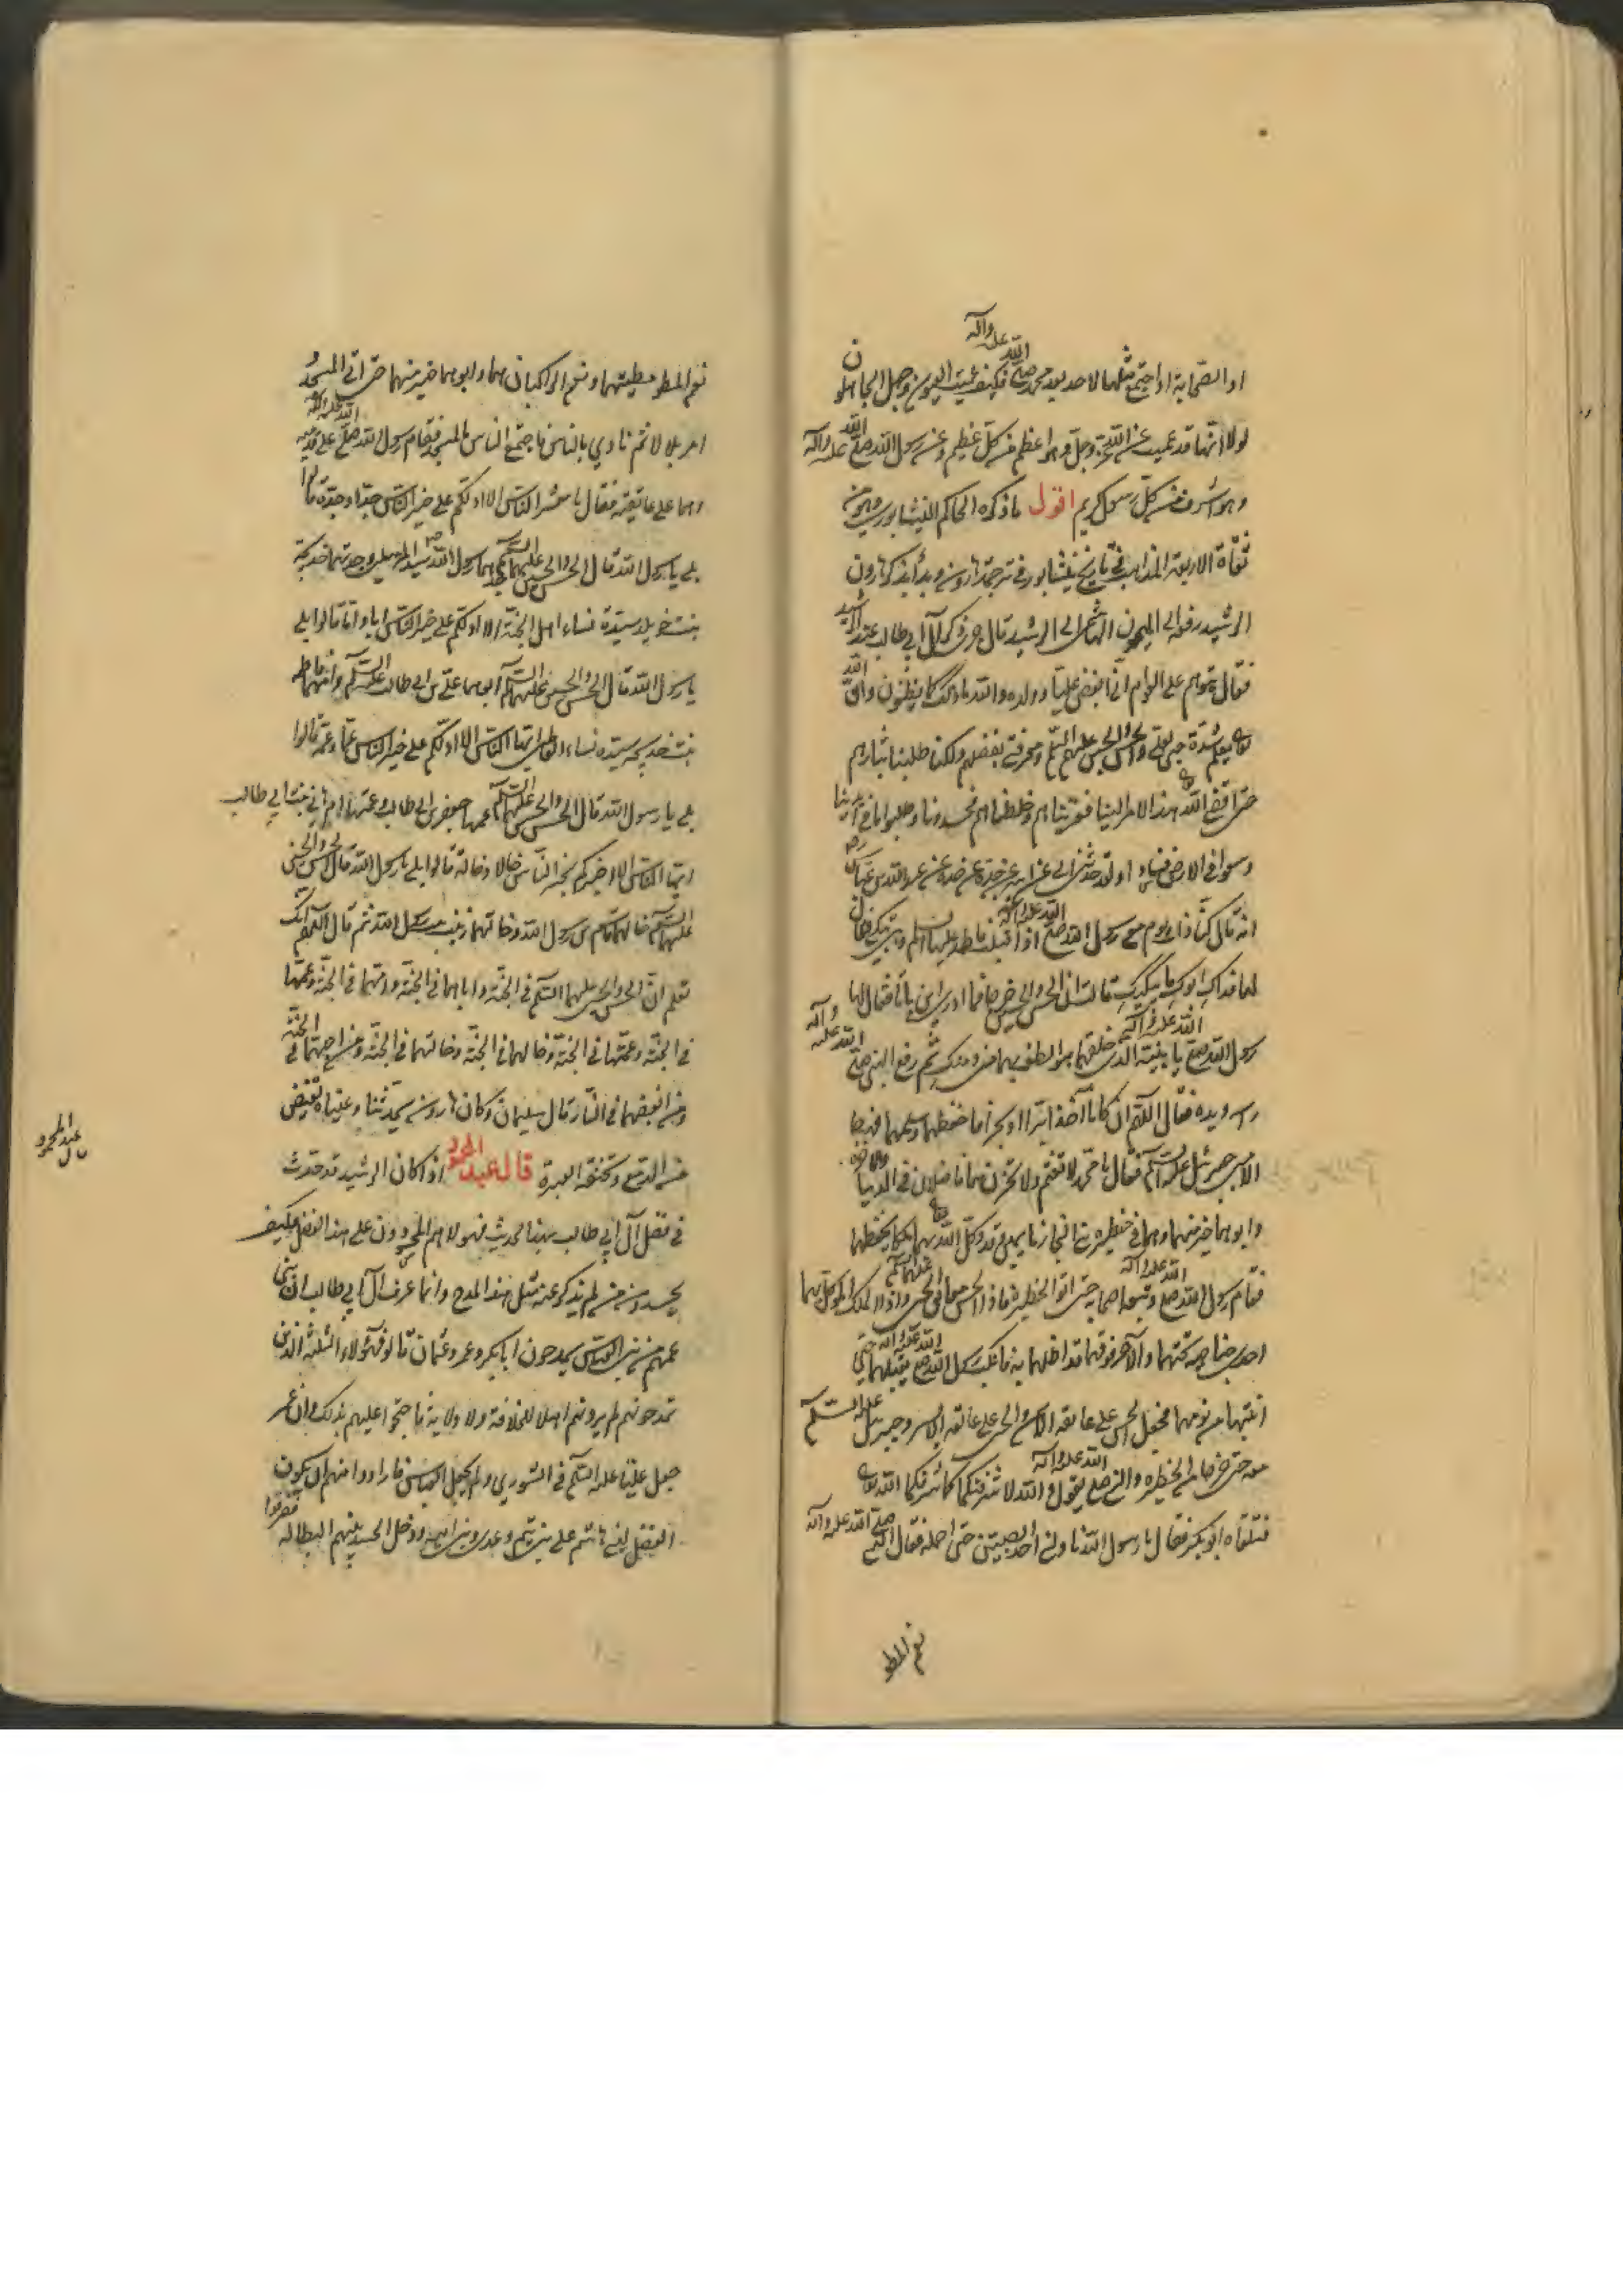 او الصحابة او اجتمع مثلها لاحد بعد محمد صلى الله عليه وآله فكيف عميت العيون وجهل الجاهلون
لولا انها قد عميت عن الله عز وجل وهو اعظم من كل عظيم وعن رسول الله صلى الله عليه وآله
وهو اشرف من كل رسول كريم اقول ما ذكره الحاكم النيشابوري وهو من
ثقاة الاربعة المذاهب في تاريخ نيشابور في ترجمة هارون وبدأ بذكر هارون
الرشيد رفعه الى الميمون الهاشمي الى الرشيد قال جرى ذكر آل ابي طالب عند الرشيد
فقال يتوهم على العوام اني ابغض عليا وولده والله ما ذلك كما يظنون وان الله
تعالى يعلم شدة حبي لعلي والحسن والحسين عليهم السلم ومعرفتي بفضلهم ولكنا طلبنا بثارهم
حتى افضى الله هذا الامر الينا فقربناهم وخلطناهم فحسدونا وطلبوا ما في ايدينا
وسعوا في الارض فسادا ولقد حدثني ابي عن ابيه عن جده عن عبد الله بن عباس
انه قال كنا ذات يوم مع رسول الله صلى الله عليه وآله اذ اقبلت فاطمة عليها السلم وهي تبكي فقال
لها فداك ابوك ما يبكيك قالت ان الحسن والحسين خرجا فما ادري اين باتا فقال لها
رسول الله صلى الله عليه وآله يا بنية الذي خلقهما هو الطف بهما مني ومنك ثم رفع النبي صلى الله عليه وآله
راسه ويده فقال اللهم ان كانا اخذا برا او بحرا فاحفظهما وسلمهما فهبط
الامين جبرئيل عليه السلم فقال يا محمد لا تغتم ولا تحزن هما فاضلان في الدنيا والآخرة
وابوهما خير منهما وهما في حظيرة بني النجار نايمين قد وكل الله بهما ملكا يحفظهما
فقام رسول الله صلى الله عليه وآله وتبعه اصحابه حتى اتوا الحظيرة فاذا الحسن معانق الحسين عليهما السلم واذا الملك الموكل بهما
احدى جناحيه تحتهما والآخر فوقهما قد اظلهما به فانكب رسول الله صلى الله عليه وآله يقبلهما حتى
انتبها من نومهما فجعل الحسن على عاتقه الايمن والحسين على عاتقه الايسر وجبرئيل عليه السلم
معه حتى خرجا من الحظيرة والنبي صلى الله عليه وآله يقول والله لاشرفنكما كما شرفكما الله تعالى
فتلقاه ابو بكر فقال يا رسول الله ناولني احد الصبيين حتى احمله فقال النبي صلى الله عليه وآله
نعم المطي
نعم المطي مطيتهما ونعم الراكبان هما وابوهما خير منهما حتى اتى المسجد
امر بلالا ثم نادى بالناس فاجتمع الناس في المسجد فقام رسول الله صلى الله عليه وآله على قدميه
وهما على عاتقيه فقال يا معشر الناس الا ادلكم على خير الناس جدا وجدة قالوا
بلى يا رسول الله قال الحسن والحسين عليهما السلم جدهما رسول الله سيد المرسلين وجدتهما خديجة
بنت خويلد سيدة نساء اهل الجنة الا ادلكم على خير الناس ابا واما قالوا بلى
يا رسول الله قال الحسن والحسين عليهما السلم ابوهما علي بن ابي طالب عليه السلم وامهما فاطمة
بنت خديجة سيدة نساء العالمين ايها الناس الا ادلكم على خير الناس عما وعمة قالوا
بلى يا رسول الله قال الحسن والحسين عليهما السلم عمهما جعفر بن ابي طالب وعمتهما ام هاني بنت ابي طالب
ايها الناس الا اخبركم بخير الناس خالا وخالة قالوا بلى يا رسول الله قال الحسن والحسين
عليهما السلم خالهما القاسم بن رسول الله وخالتهما زينب بنت رسول الله ثم قال اللهم انك
تعلم ان الحسن والحسين عليهما السلم في الجنة واباهما في الجنة وامهما في الجنة وعمهما
في الجنة وعمتهما في الجنة وخالهما في الجنة وخالتهما في الجنة ومن احبهما في الجنة
ومن ابغضهما في النار قال سليمان وكان هارون يحدثنا وعيناه تفيض
من الدمع وتخنقه العبرة قال عبد المحمود اذا كان الرشيد قد حدث
في فضل آل ابي طالب بهذا الحديث فهولاء هم المحسودون على هذا الفضل فكيف
يحسدون من لم يذكر عنه مثل هذا المدح وانما عرف آل ابي طالب ان بني
عمهم من بني العباس يمدحون ابا بكر وعمر وعثمان قالوا فهؤلاء الثلثة الذين
تمدحونهم لم يرونهم اهلا للخلافة ولا ولاية فاحتجوا عليهم بذلك وان عمر
جعل عليا عليه السلم في الشورى ولم يجعل العباس فارادوا منهم ان يكون
الفضل لبني هاشم على بني تيم وعدي وبني امية ودخل الحسد بينهم البطالة فتفرقوا
قال عبد المحمود